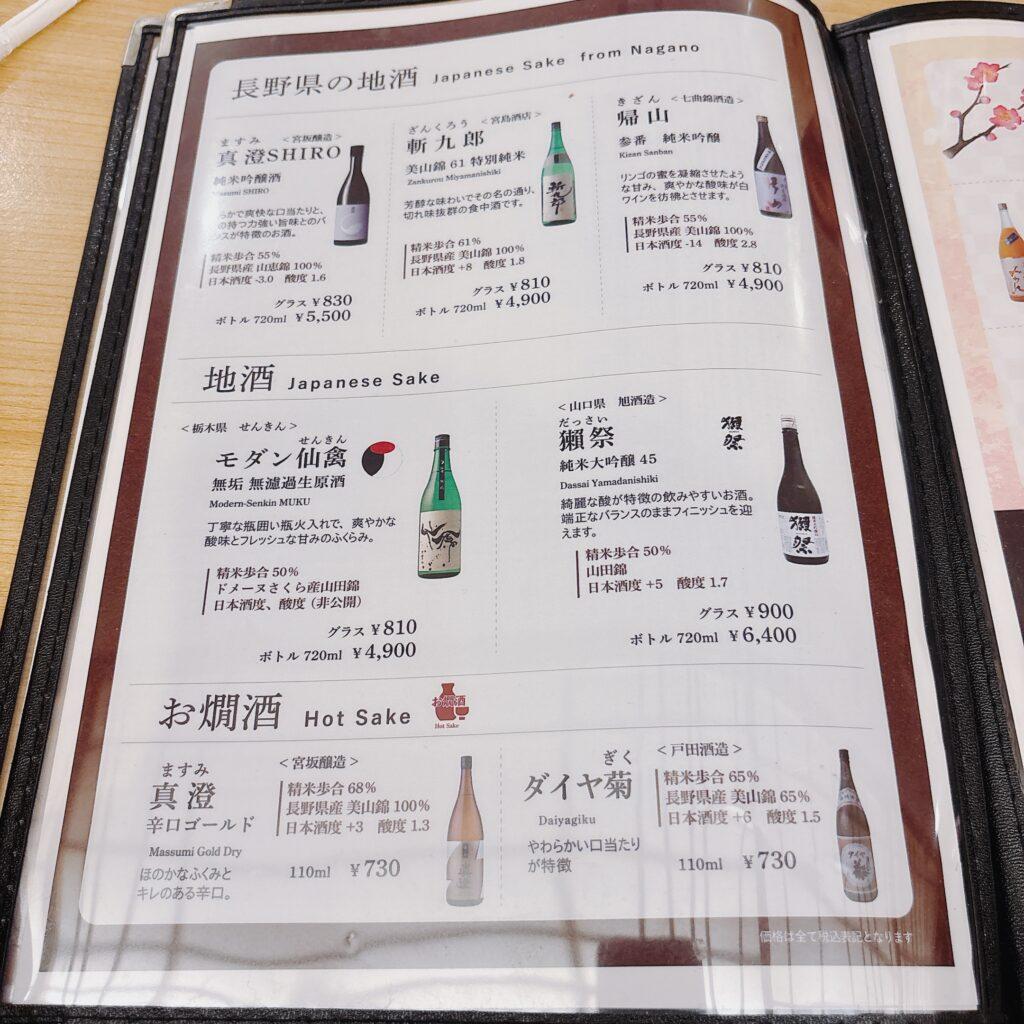 長野県の地酒 Japanese Sake from Nagano
ますみ <宮坂醸造>
真澄SHIRO
純米吟醸酒
Masumi SHIRO
らかで爽快な口当たりと、
の持つ力強い旨味とのバ
ンスが特徴のお酒。
精米歩合 55%
長野県産 山恵錦 100%
日本酒度 -3.0 酸度 1.6
グラス ¥830
ボトル 720ml ¥5,500
ざんくろう <宮島酒店>
斬九郎
美山錦 61 特別純米
Zankurou Miyamanishiki
芳醇な味わいでその名の通り、
切れ味抜群の食中酒です。
精米歩合 61%
長野県産 美山錦 100%
日本酒度 +8 酸度 1.8
グラス ¥810
ボトル 720ml ¥4,900
きざん <七曲錦酒造>
帰山
参番 純米吟醸
Kizan Sanban
リンゴの蜜を凝縮させたよう
な甘み、爽やかな酸味が白
ワインを彷彿とさせます。
精米歩合 55%
長野県産 美山錦 100%
日本酒度 -14 酸度 2.8
グラス ¥810
ボトル 720ml ¥4,900
地酒 Japanese Sake
<栃木県 せんきん>
せんきん
モダン仙禽
無垢 無濾過生原酒
Modern-Senkin MUKU
丁寧な瓶囲い瓶火入れで、爽やかな
酸味とフレッシュな甘みのふくらみ。
精米歩合 50%
ドメーヌさくら産山田錦
日本酒度、酸度(非公開)
グラス ¥810
ボトル 720ml ¥4,900
<山口県 旭酒造>
だっさい
獺祭
純米大吟醸 45
Dassai Yamadanishiki
綺麗な酸が特徴の飲みやすいお酒。
端正なバランスのままフィニッシュを迎
えます。
精米歩合 50%
山田錦
日本酒度 +5 酸度 1.7
グラス ¥900
ボトル 720ml ¥6,400
獺祭
獺祭
お燗酒 Hot Sake
お燗酒
Hot Sake
ますみ <宮坂醸造>
真澄
辛口ゴールド
Massumi Gold Dry
ほのかなふくみと
キレのある辛口。
精米歩合 68%
長野県産 美山錦 100%
日本酒度 +3 酸度 1.3
110ml ¥730
ぎく <戸田酒造>
ダイヤ菊
Daiyagiku
やわらかい口当たり
が特徴
精米歩合 65%
長野県産 美山錦 65%
日本酒度 +6 酸度 1.5
110ml ¥730
価格は全て税込表記となります